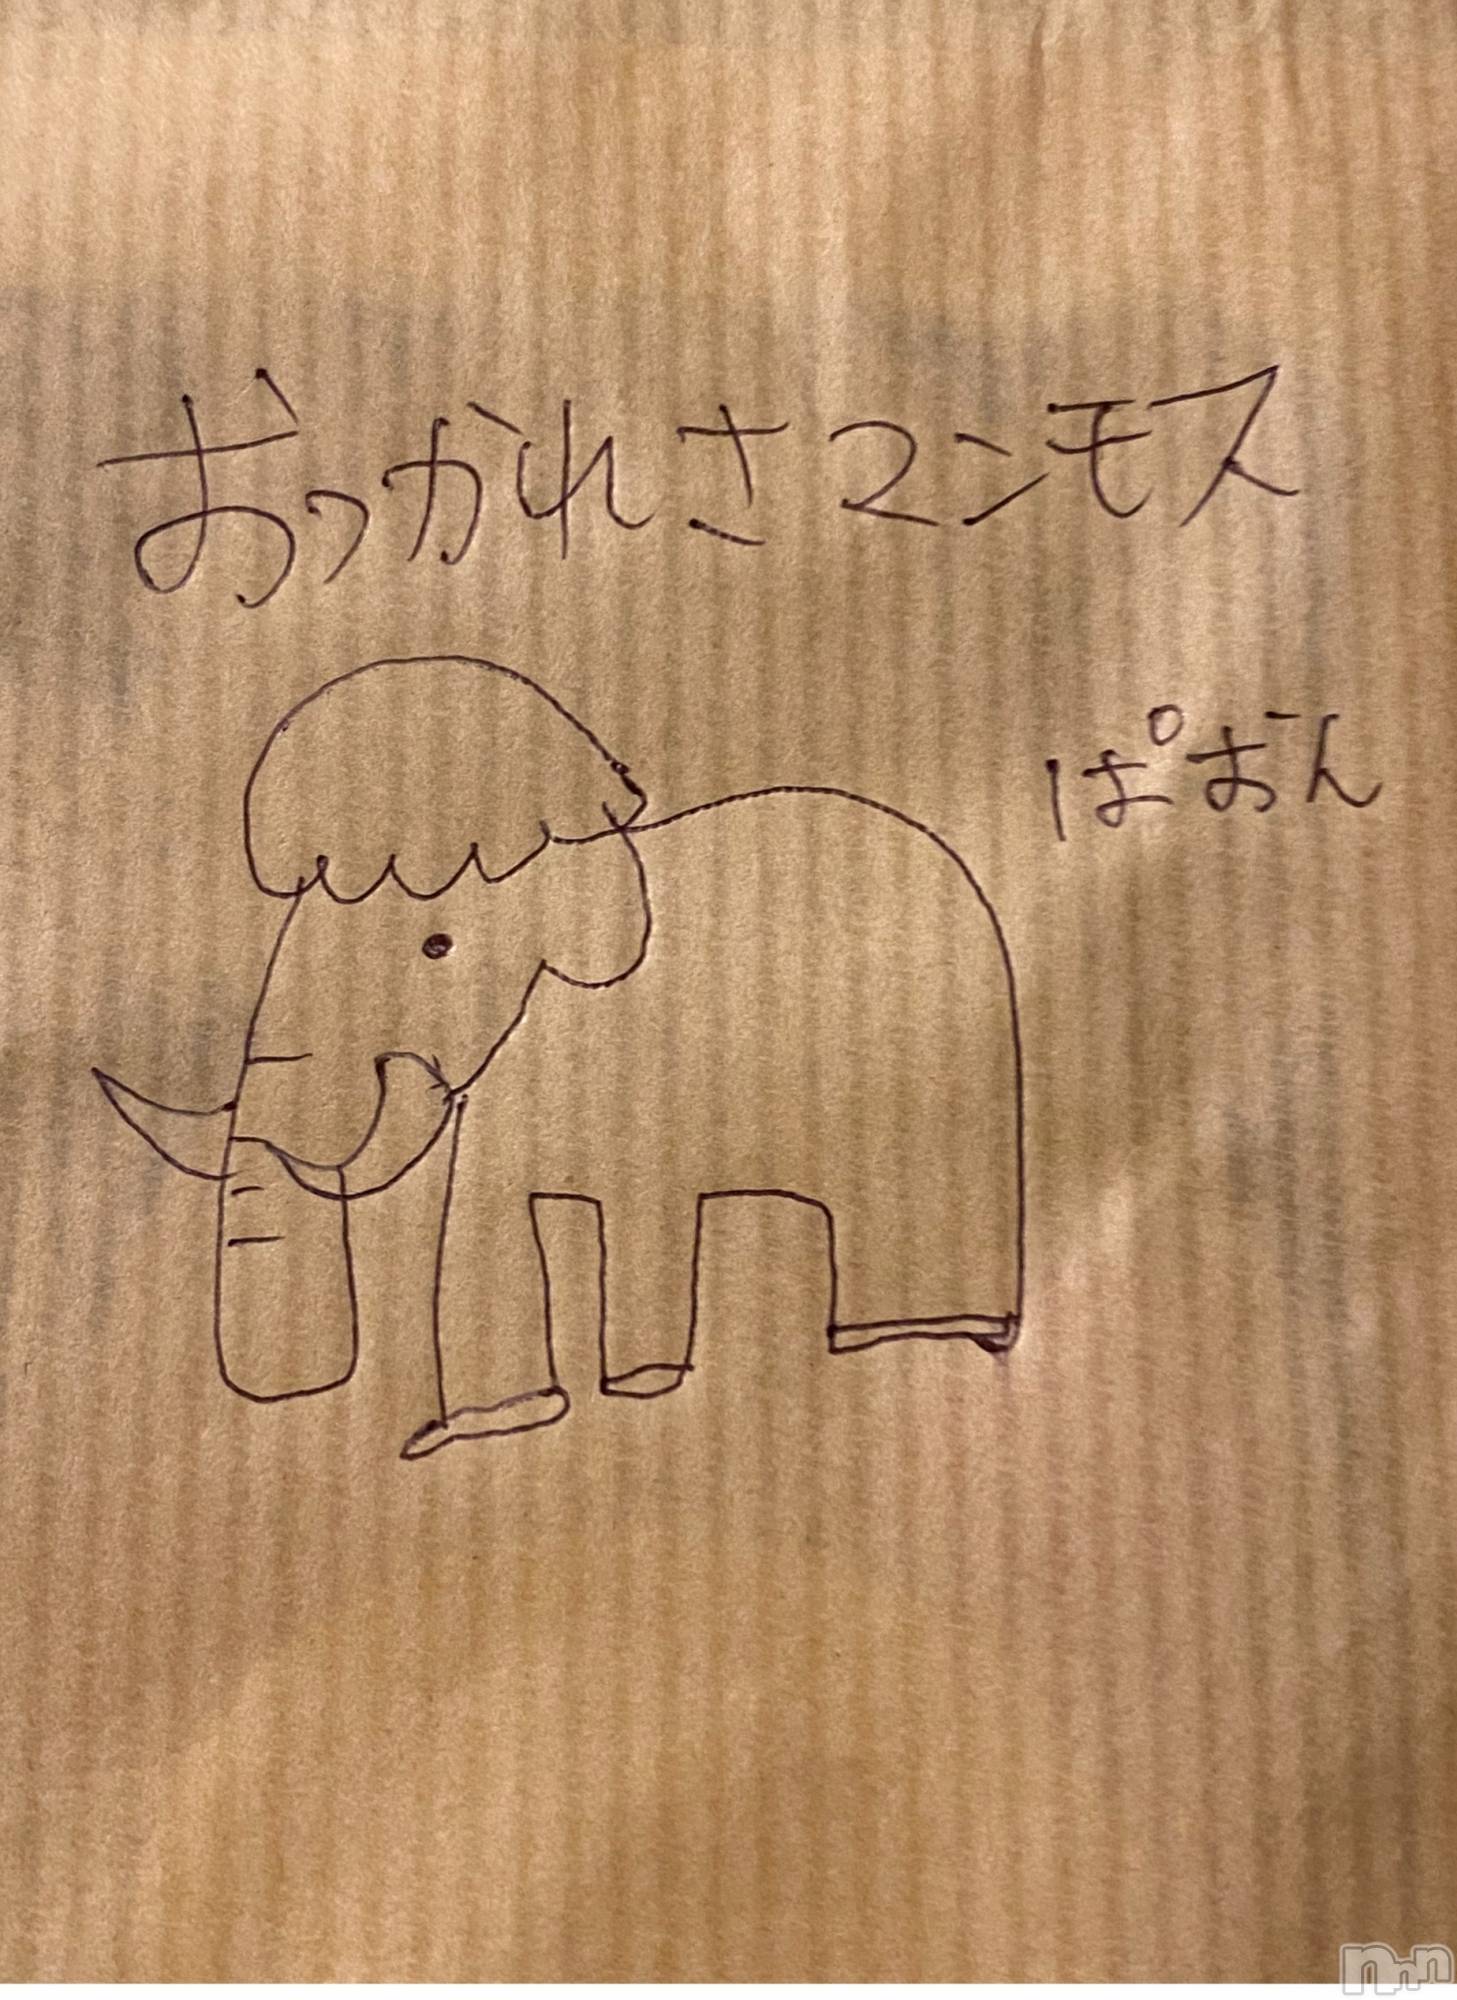 おつかれさマンモス
ぱおん
nnn